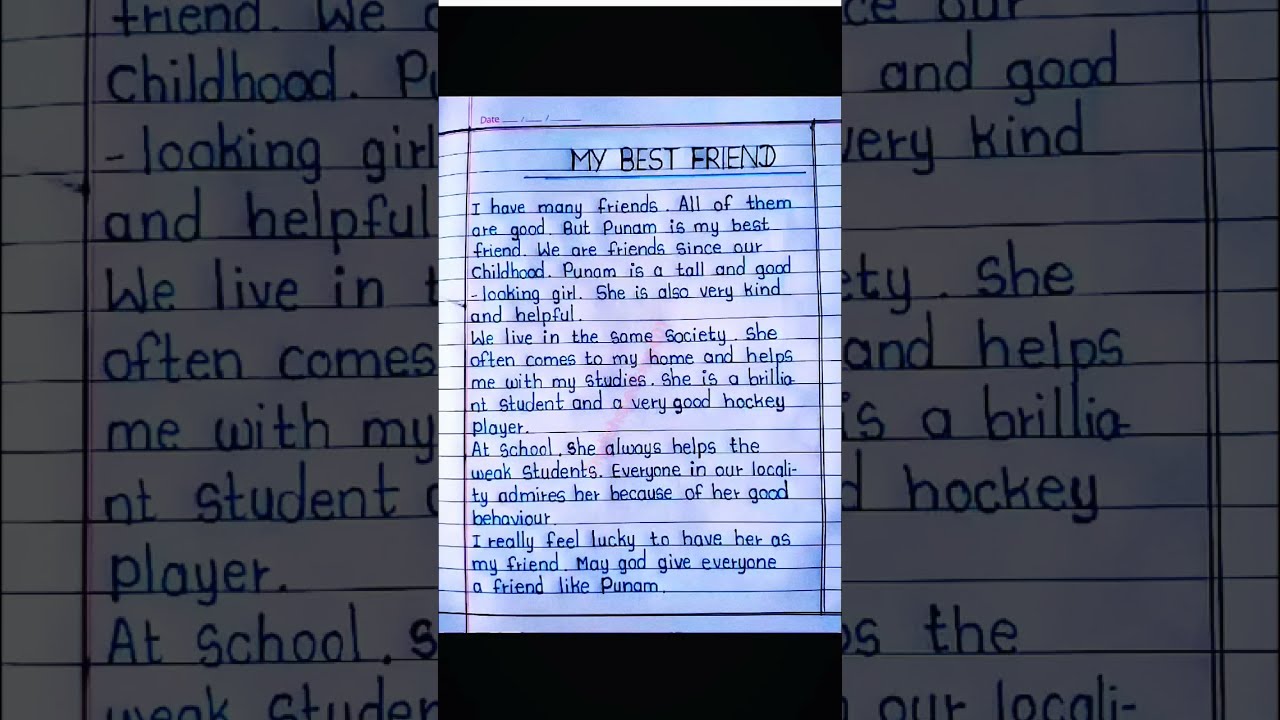 Date
MY BEST FRIEND
I have many friends. All of them
are good. But Punam is my best
friend. We are friends since our
Childhood. Punam is a tall and good
-looking girl. She is also very kind
and helpful.
We live in the same society. She
often comes to my home and helps
me with my studies. She is a brillia-
nt student and a very good hockey
player.
At school, she always helps the
weak students. Everyone in our locali-
ty admires her because of her good
behaviour.
I really feel lucky to have her as
my friend. May god give everyone
a friend like Punam.